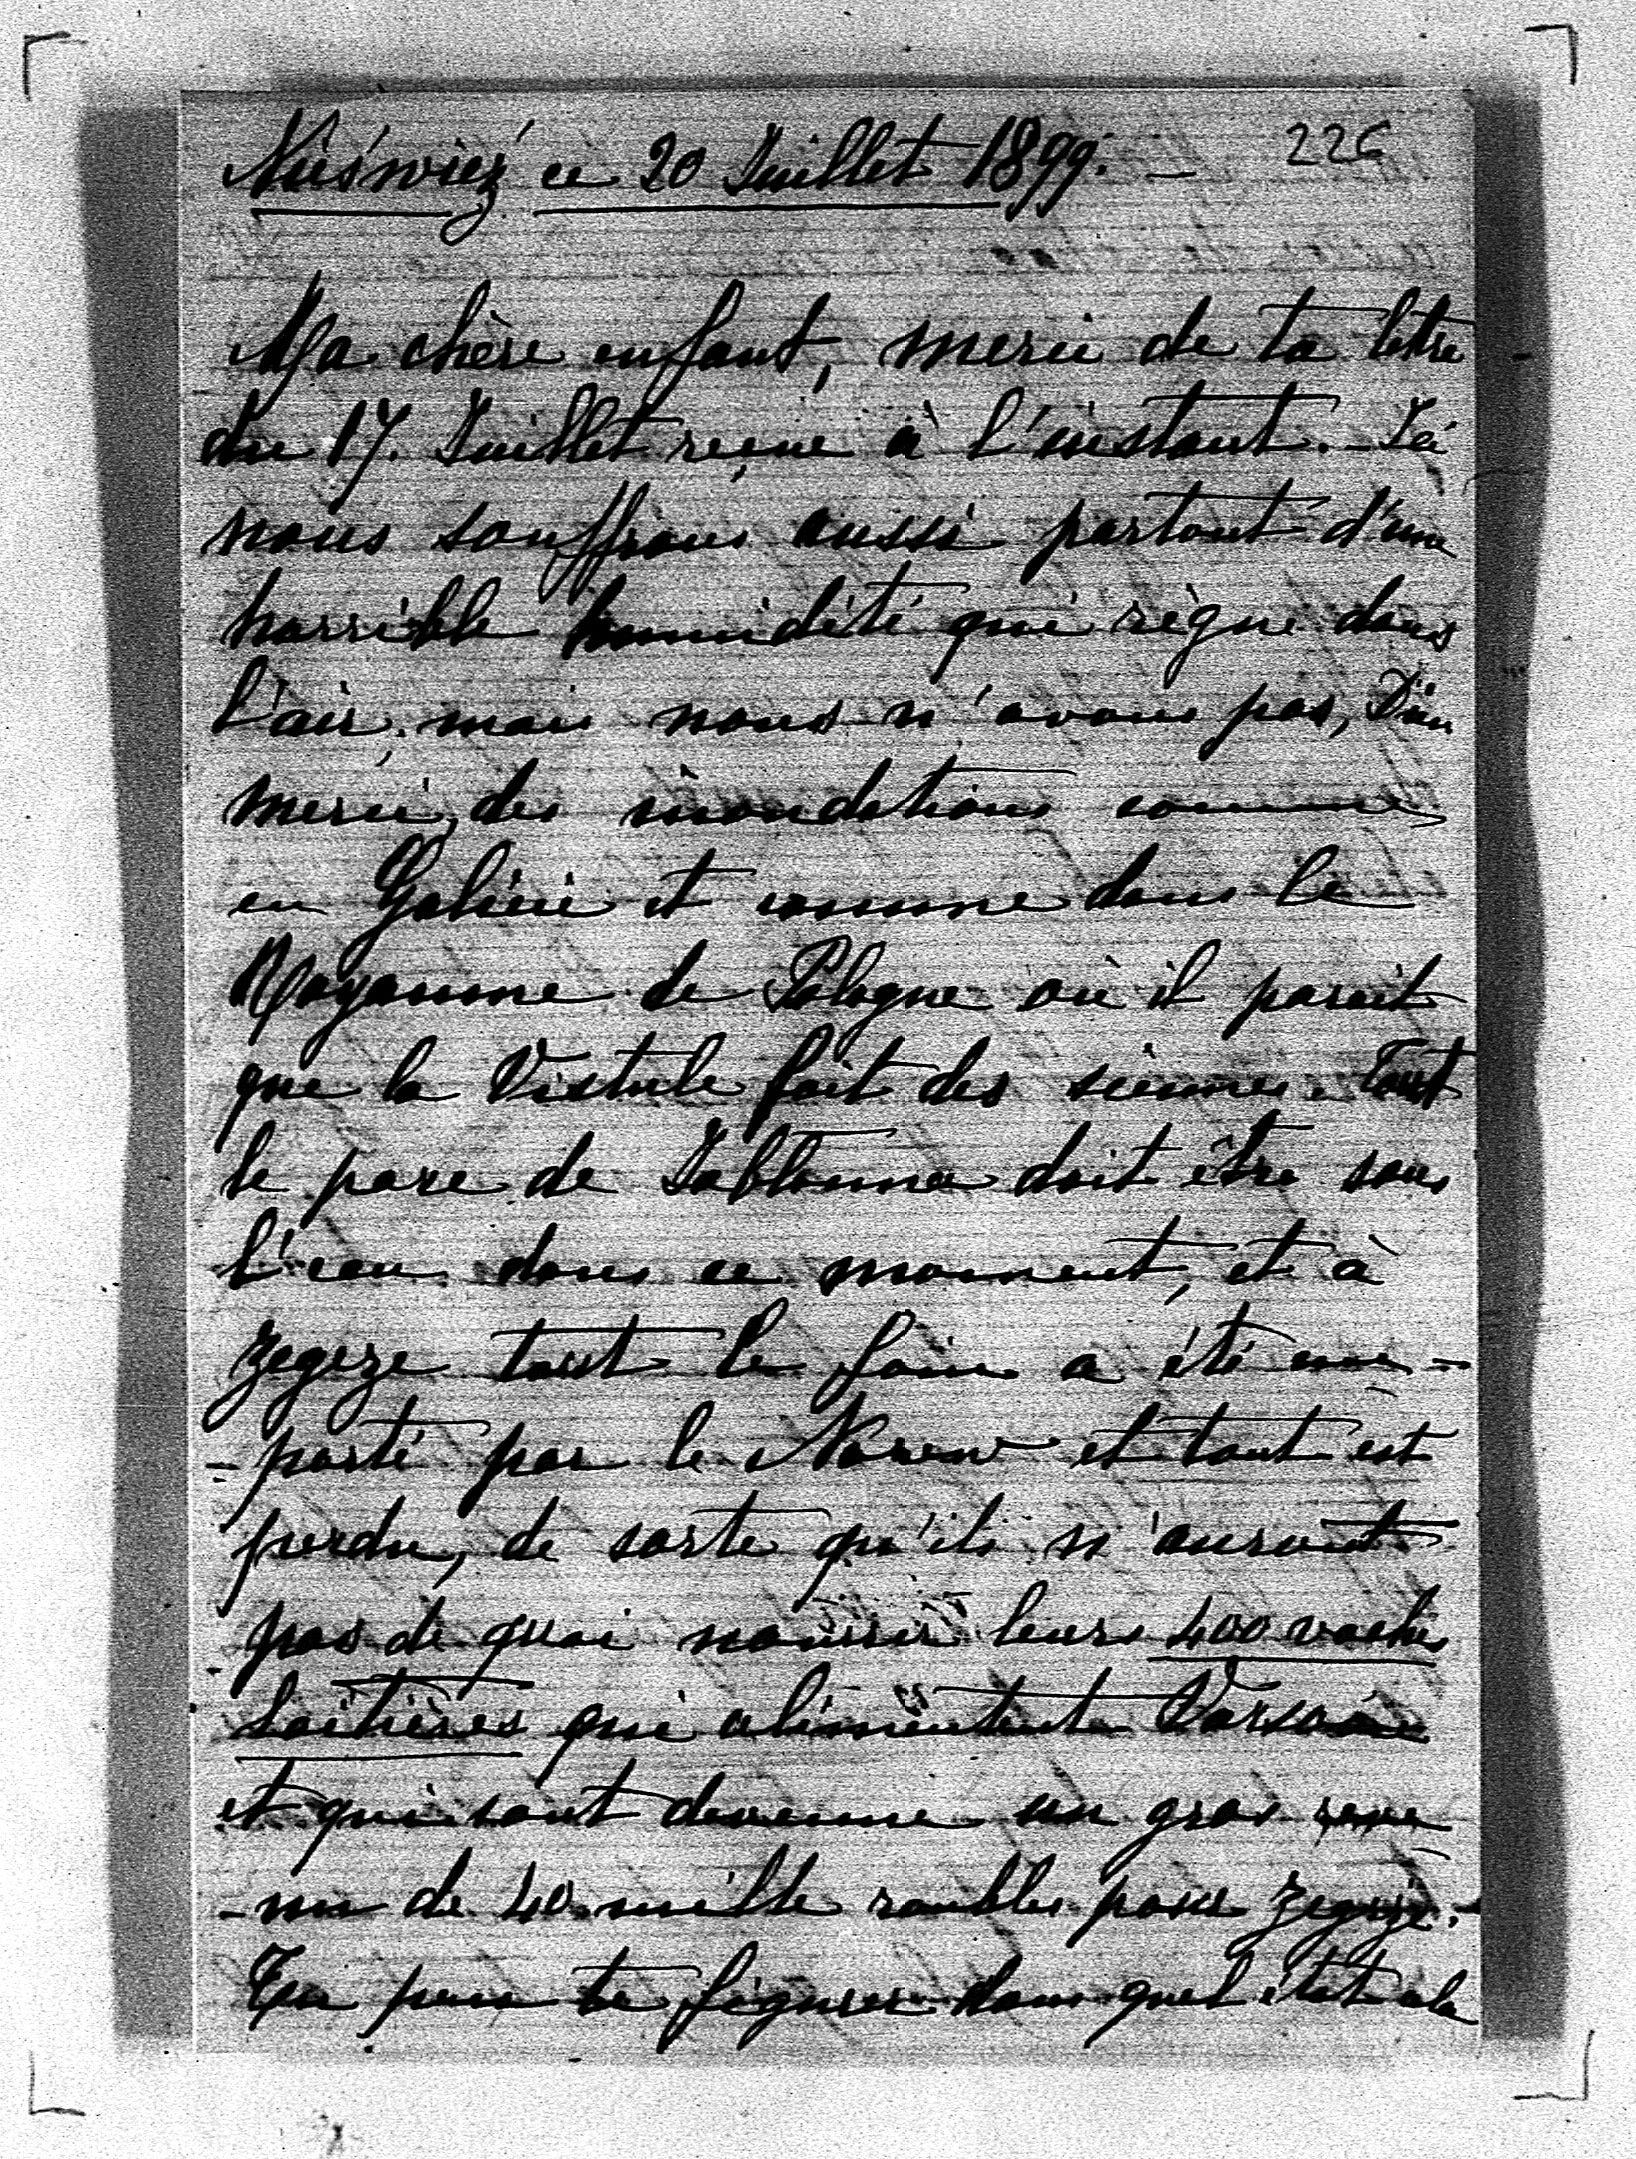 Nieśwież ce 20 Juillet 1899. —
226
Ma chère enfant, merci de ta lettre
du 17. Juillet reçue à l'instant. – Ici
nous souffrons aussi partout d'une
horrible humidité qui règne dans
l'air, mais nous n'avons pas, Dieu
merci, des inondations comme
en Galicie et comme dans le
Royaume de Pologne où il parait
que la Vistule fait des siennes. Tout
le parc de Jabłonna doit être sous
l'eau dans ce moment, et à
Zegrze tout le foin a été em-
-porté par le Narew et tout est
perdu, de sorte qu'ils n'auront
pas de quoi nourrir leurs 400 vaches
laitières qui alimentent Varsovie
et qui sont devenue un gros reve
-nu de 40 mille roubles pour Zegrze. -
Tu peux te figurer dans quel état cela